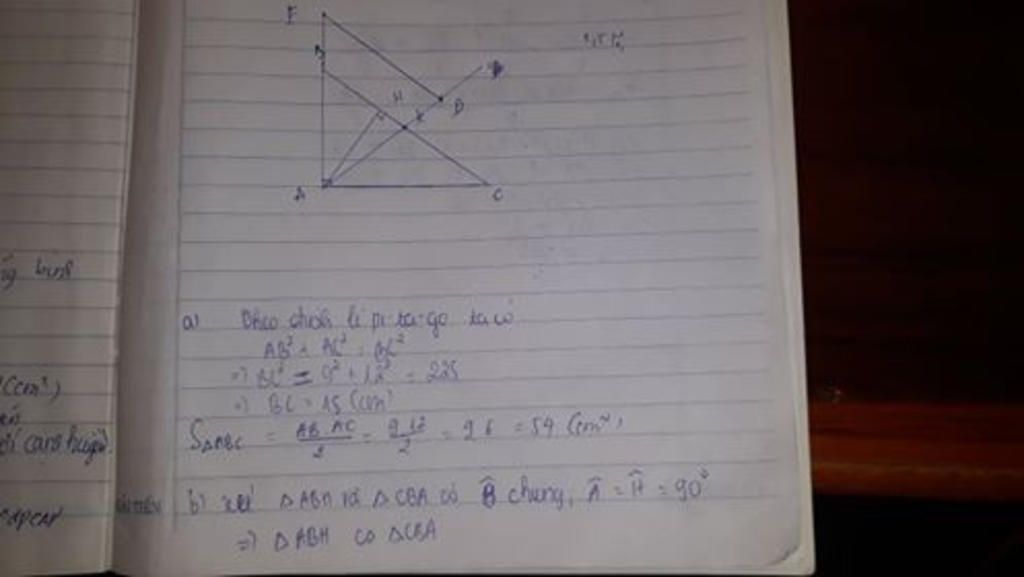 F
B
H
K
D
A
C
a) Theo định lí pi-ta-go ta có
AB² + AC² = BC²
=> BC² = 9² + 12² = 225
=> BC = 15 (cm)
S△ABC = AB.AC/2 = 9.12/2 = 9.6 = 54 (cm²)
b) xét △ABH và △CBA có B̂ chung, Â = Ĥ = 90°
=> △ABH ∽ △CBA
(cm²)